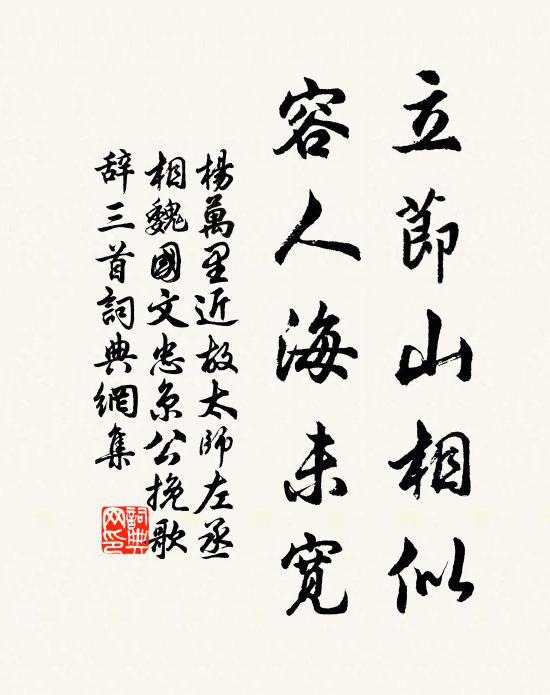 立節山相似
容人海未寬
楊萬里近故太師左丞
相魏國文忠京公挽歌
辞三首詞典網集
詞典
网印